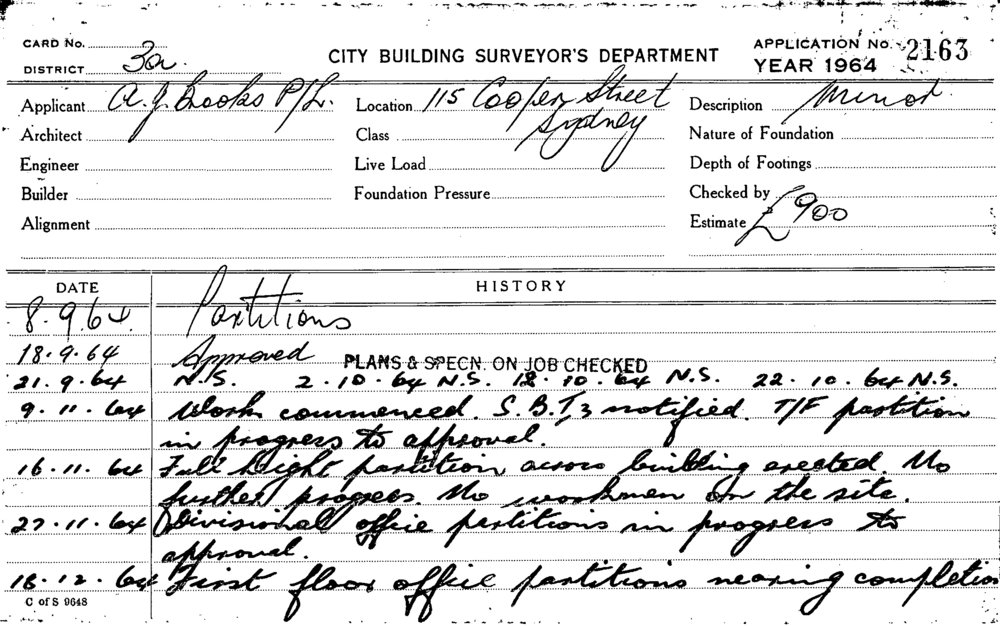 CARD No.
DISTRICT 3a.
CITY BUILDING SURVEYOR'S DEPARTMENT
APPLICATION No. 2163
YEAR 1964
Applicant A. J. Brooks P/L. Location 115 Cooper Street Description Minor
Sydney
Architect Class Nature of Foundation
Engineer Live Load Depth of Footings
Builder Foundation Pressure Checked by
Alignment Estimate £900
DATE HISTORY
8.9.64. Partitions
18.9.64 Approved PLANS & SPECN. ON JOB CHECKED
21.9.64 N.S. 2.10.64 N.S. 12.10.64 N.S. 22.10.64 N.S.
9.11.64 Work commenced. S.B.I.3 notified. T/F partition
in progress to approval.
16.11.64 Full height partition across building erected. No
further progress. No workmen on the site.
27.11.64 Divisional office partitions in progress to
approval.
16.12.64 First floor office partitions nearing completion
C of S 9648